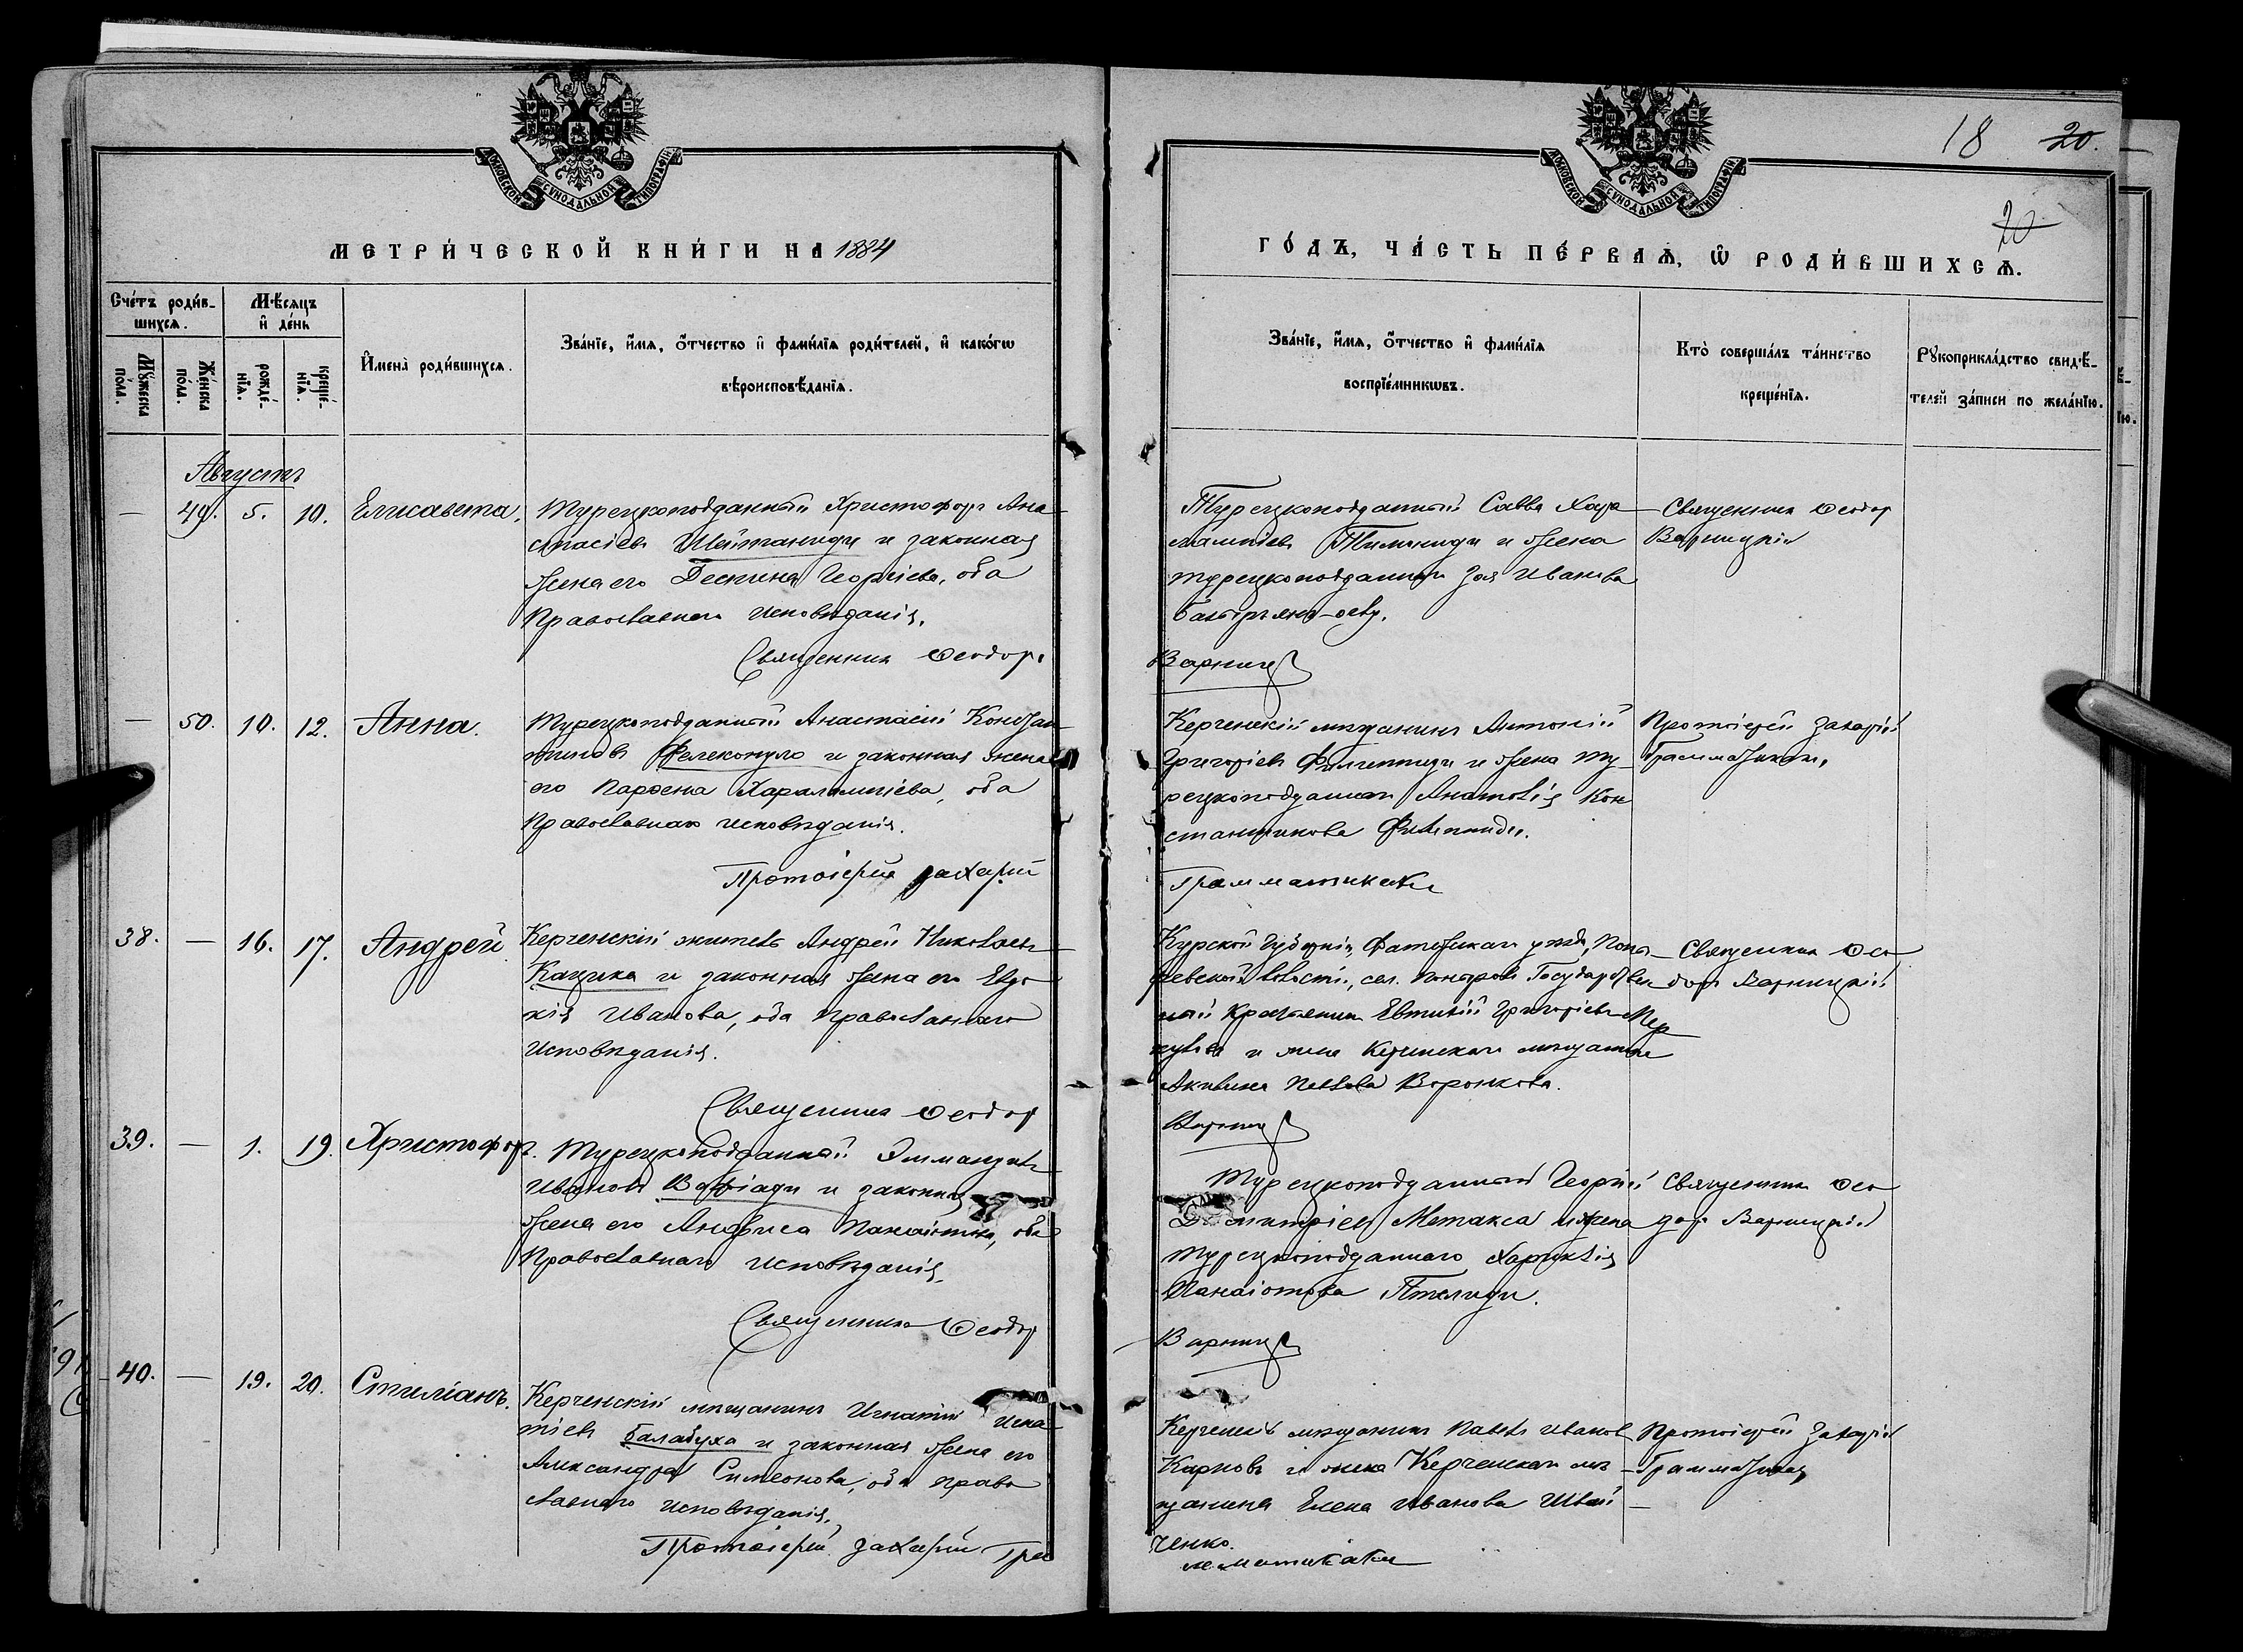 МОСКОВСКОЙ СѴНОДАЛЬНОЙ ТИПОГРАФІИ
МЕТРИ́ЧЕСКОЙ КНИ́ГИ НА 1884
Сче́тъ роди́в-
шихсѧ.
Мѣ́сѧцъ
и҆ де́нь
Мꙋ́жеска
по́ла.
Же́нска
по́ла.
рожде́-
нїѧ.
креще́-
нїѧ.
И҆мена̀ роди́вшихсѧ.
Зва́нїе, и҆́мѧ, ѻ҆́тчество и҆ фами́лїѧ роди́телей, и҆ како́гѡ
вѣроисповѣ́данїѧ.
Августъ
— 49. 5. 10. Елисавета.
Турецкоподданный Христофоръ Ана
стасіевъ Шейтаниди и законная
жена его Деспина Георгіева, оба
Православнаго исповѣданія.
Священникъ Ѳеодоръ
— 50. 10. 12. Анна.
Турецкоподданный Анастасій Констан
тиновъ Фелекопуло и законная жена
его Парѳена Харалампіева, оба
Православнаго исповѣданія.
Протоіерей Захарій
38. — 16. 17. Андрей
Керченскій житель Андрей Николаевъ
Кацика и законная жена его Евдо
кія Иванова, оба Православнаго
исповѣданія.
Священникъ Ѳеодоръ
39. — 1. 19. Христофоръ.
Турецкоподданный Эммануилъ
Ивановъ Вафіади и законная
жена его Анѳиса Панаіотова, оба
Православнаго исповѣданія.
Священникъ Ѳеодоръ
40. — 19. 20. Стиліанъ.
Керченскій мѣщанинъ Игнатій Игна
тіевъ Балабуха и законная жена его
Александра Симеонова, оба право
славнаго исповѣданія.
Протоіерей Захарій Гра
МОСКОВСКОЙ СѴНОДАЛЬНОЙ ТИПОГРАФІИ
18 20.
20
ГО́ДЪ, ЧА́СТЬ ПЕ́РВАѦ, Ѡ҆ РОДИ́ВШИХСѦ.
Зва́нїе, и҆́мѧ, ѻ҆́тчество и҆ фами́лїѧ
воспрїе́мникѡвъ.
Кто̀ соверша́лъ та́инство
креще́нїѧ.
Рꙋкоприкла́дство свидѣ́-
телей за́писи по жела́нїю.
Турецкоподданный Савва Хара
лампіевъ и жена
турецкоподданнаго Зоя Иванова
Варниц
Священникъ Ѳеодоръ
Варницкій
Керченскій мѣщанинъ Антоній
Григоріевъ и жена ту
рецкоподданнаго Анатолія Кон
стантинова
Грамматикаки
Протоіерей Захарій
Грамматикаки
Курской губерніи, Фатежскаго уѣзда, Поны
ревской волости, сел. Понырово Государствен
ный крестьянинъ Евтихій Григоріевъ Мер
куловъ и жена Керченскаго мѣщанина
Акилина Павлова Воронкова.
Варниц
Священникъ Ѳео
доръ Варницкій
Турецкоподданный Георгій
Димитріевъ Метакса и жена
турецкоподданнаго Хариклія
Панаіотова
Варниц
Священникъ Ѳео
доръ Варницкій
Керченскій мѣщанинъ Павелъ Ивановъ
Карповъ и жена Керченскаго мѣ
щанина Елена Иванова Швай
ченко.
мматикаки
Протоіерей Захарій
Грамматикаки